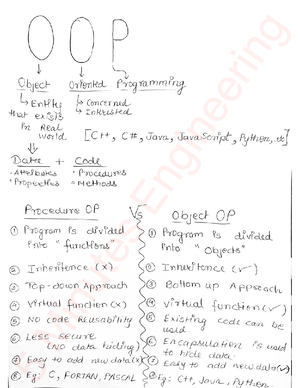 OOP
Object Oriented Programming
Entity that exists in Real World
Concerned
Interested
[C++, C#, Java, JavaScript, Python, etc]
Data + Code
• Attributes
• Properties
• Procedures
• Methods
Procedure OP Vs Object OP
① Program is divided into "functions"
② Inheritence (x)
③ Top-down Approach
④ Virtual function (x)
⑤ No code Reusability
⑥ Less secure (No data hiding)
⑦ Easy to add new data (x)
⑧ Eg: C, FORTAN, PASCAL
① Program is divided into "Objects"
② Inheritence (✓)
③ Bottom up Approach
④ Virtual function (✓)
⑤ Existing code can be used
⑥ Encapsulation is used to hide data.
⑦ Easy to add new data (✓)
⑧ Eg: C++, Java, Python